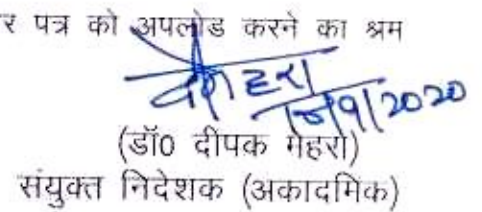 र पत्र को अपलोड करने का श्रम
9/2020
(डॉ0 दीपक मेहरा)
संयुक्त निदेशक (अकादमिक)